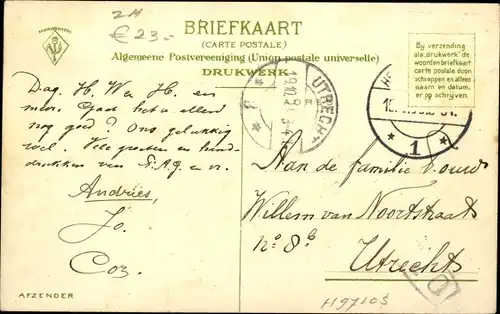 2H
€ 23-
BRIEFKAART
(CARTE POSTALE)
Algemeene Postvereeniging (Union postale universelle)
DRUKWERK
By verzending
als „drukwerk" de
woorden briefkaart
carte postale door-
schrappen en alleen
naam en datum
er op schrijven.
UTRECHT
1
Dag. H, W en H. en
Gaat het u allen
nog goed? Ons gelukkig
wel. Vele groeten en hand-
drukken van
Andries,
Jo.
Cor.
Aan de familie
Willem van Noortstraat
no. 8 b
Utrecht
AFZENDER
H9710S